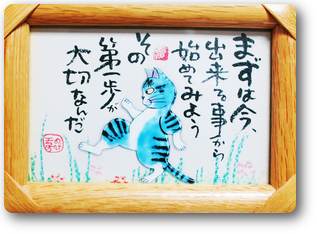 まずは今、
出来る事から
始めてみよう
その
第一歩が
大切なんだ